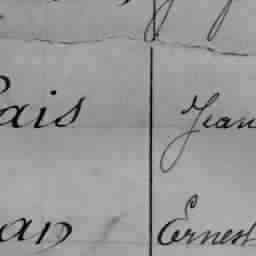 ais Jean
an Ernest